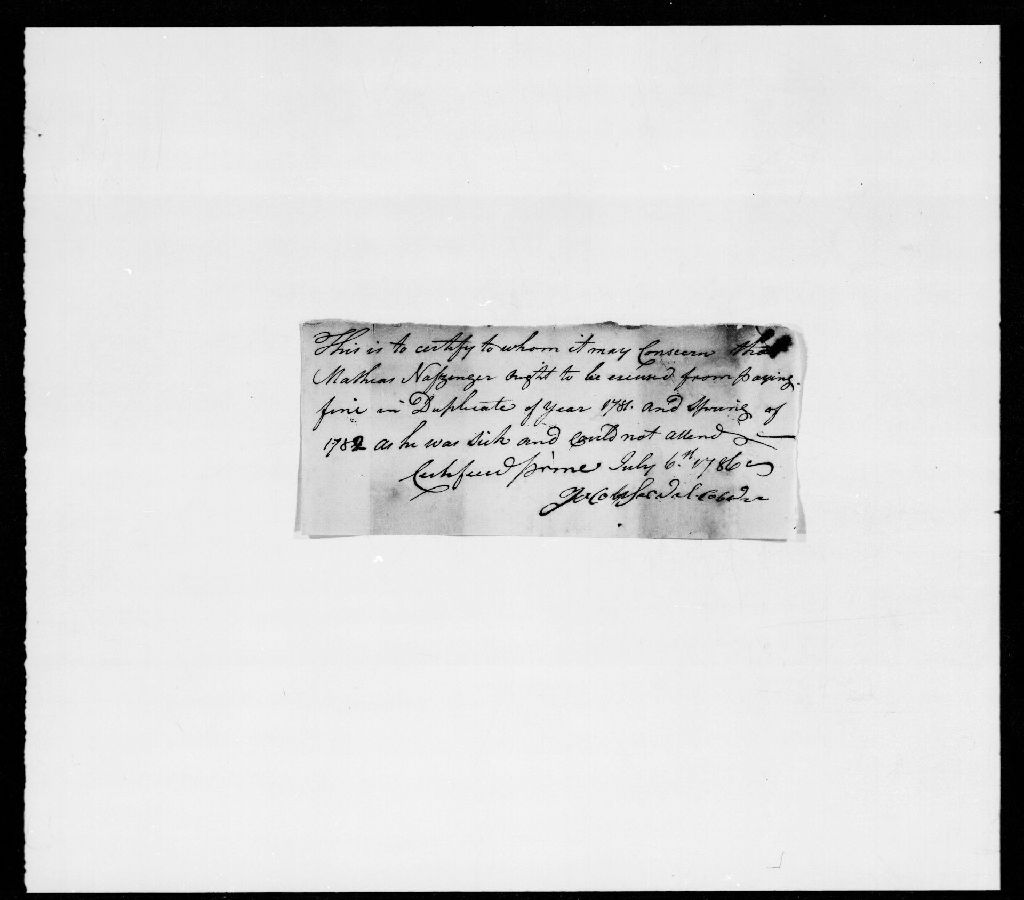 This is to certify to whom it may Conscern that
Mathias Nafzenger ought to be excused from paying
fine in Duplicate of year 1781. and Spring of
1782 as he was Sick and Could not attend
Certifeed pr me July 6.th 1786
Jacob